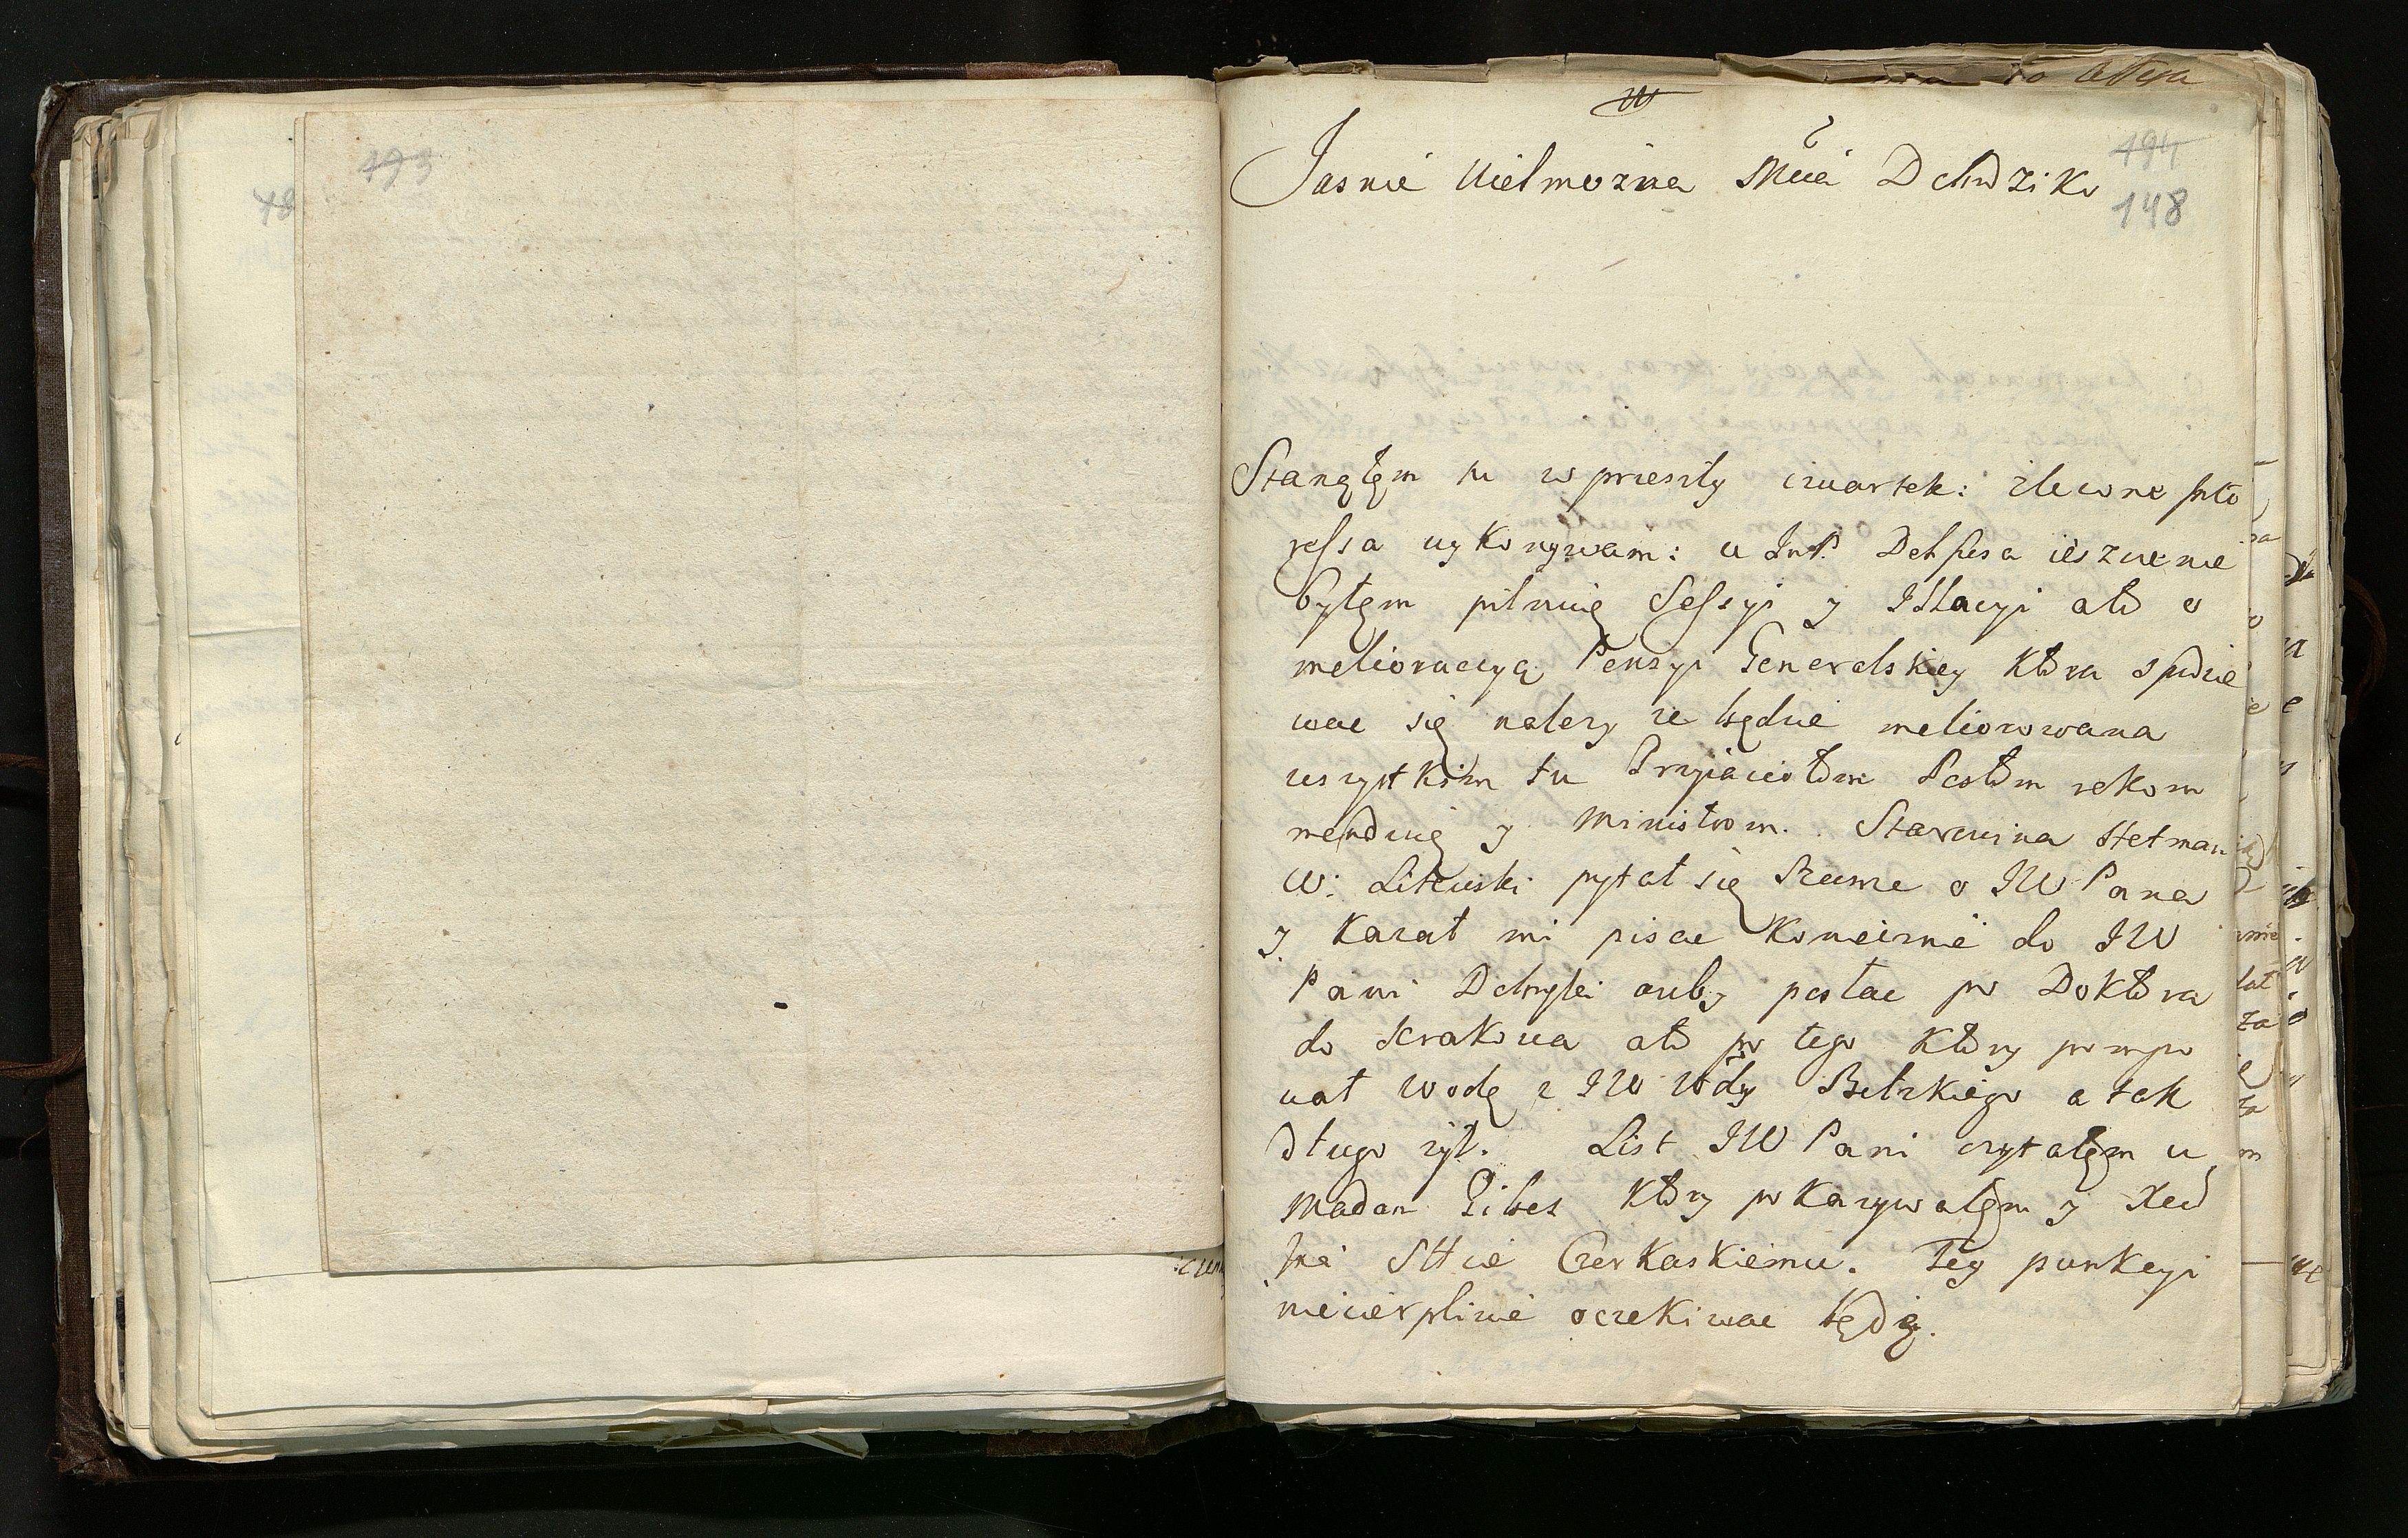 193
48
194
148
Jasnie Wielmożna Mcia Dobrodziko
Stanąłęm tu w przeszły czwartek: zlecone jnte
ressa wykonywam: u ImP. Delfusa ieszcze nie
byłęm pilnuię Sessyi y Illacyi ato o
melioracyą Pensyi Generalskiey ktora spodzie
wac się nalezy ze będzie meliorowana
wszystkim tu Przyiaciołom Posłom rekom
menduię y Ministrom. Starowina Hetman
W: Litewski pytał się o JW Pana
y kazał mi pisac koniecznie do JW
Pani Dobryki azeby posłac po Doktora
do Krakowa ato po tego ktory pompo
wał wodę z JW Wdy Bełzkiego a tak
długo zył. List JW Pani czytałęm u
Madam ktory pokazywałęm y
Sttcie Czerkaskiemu. Tey punkcyi
niecierpliwie oczekiwac będę.